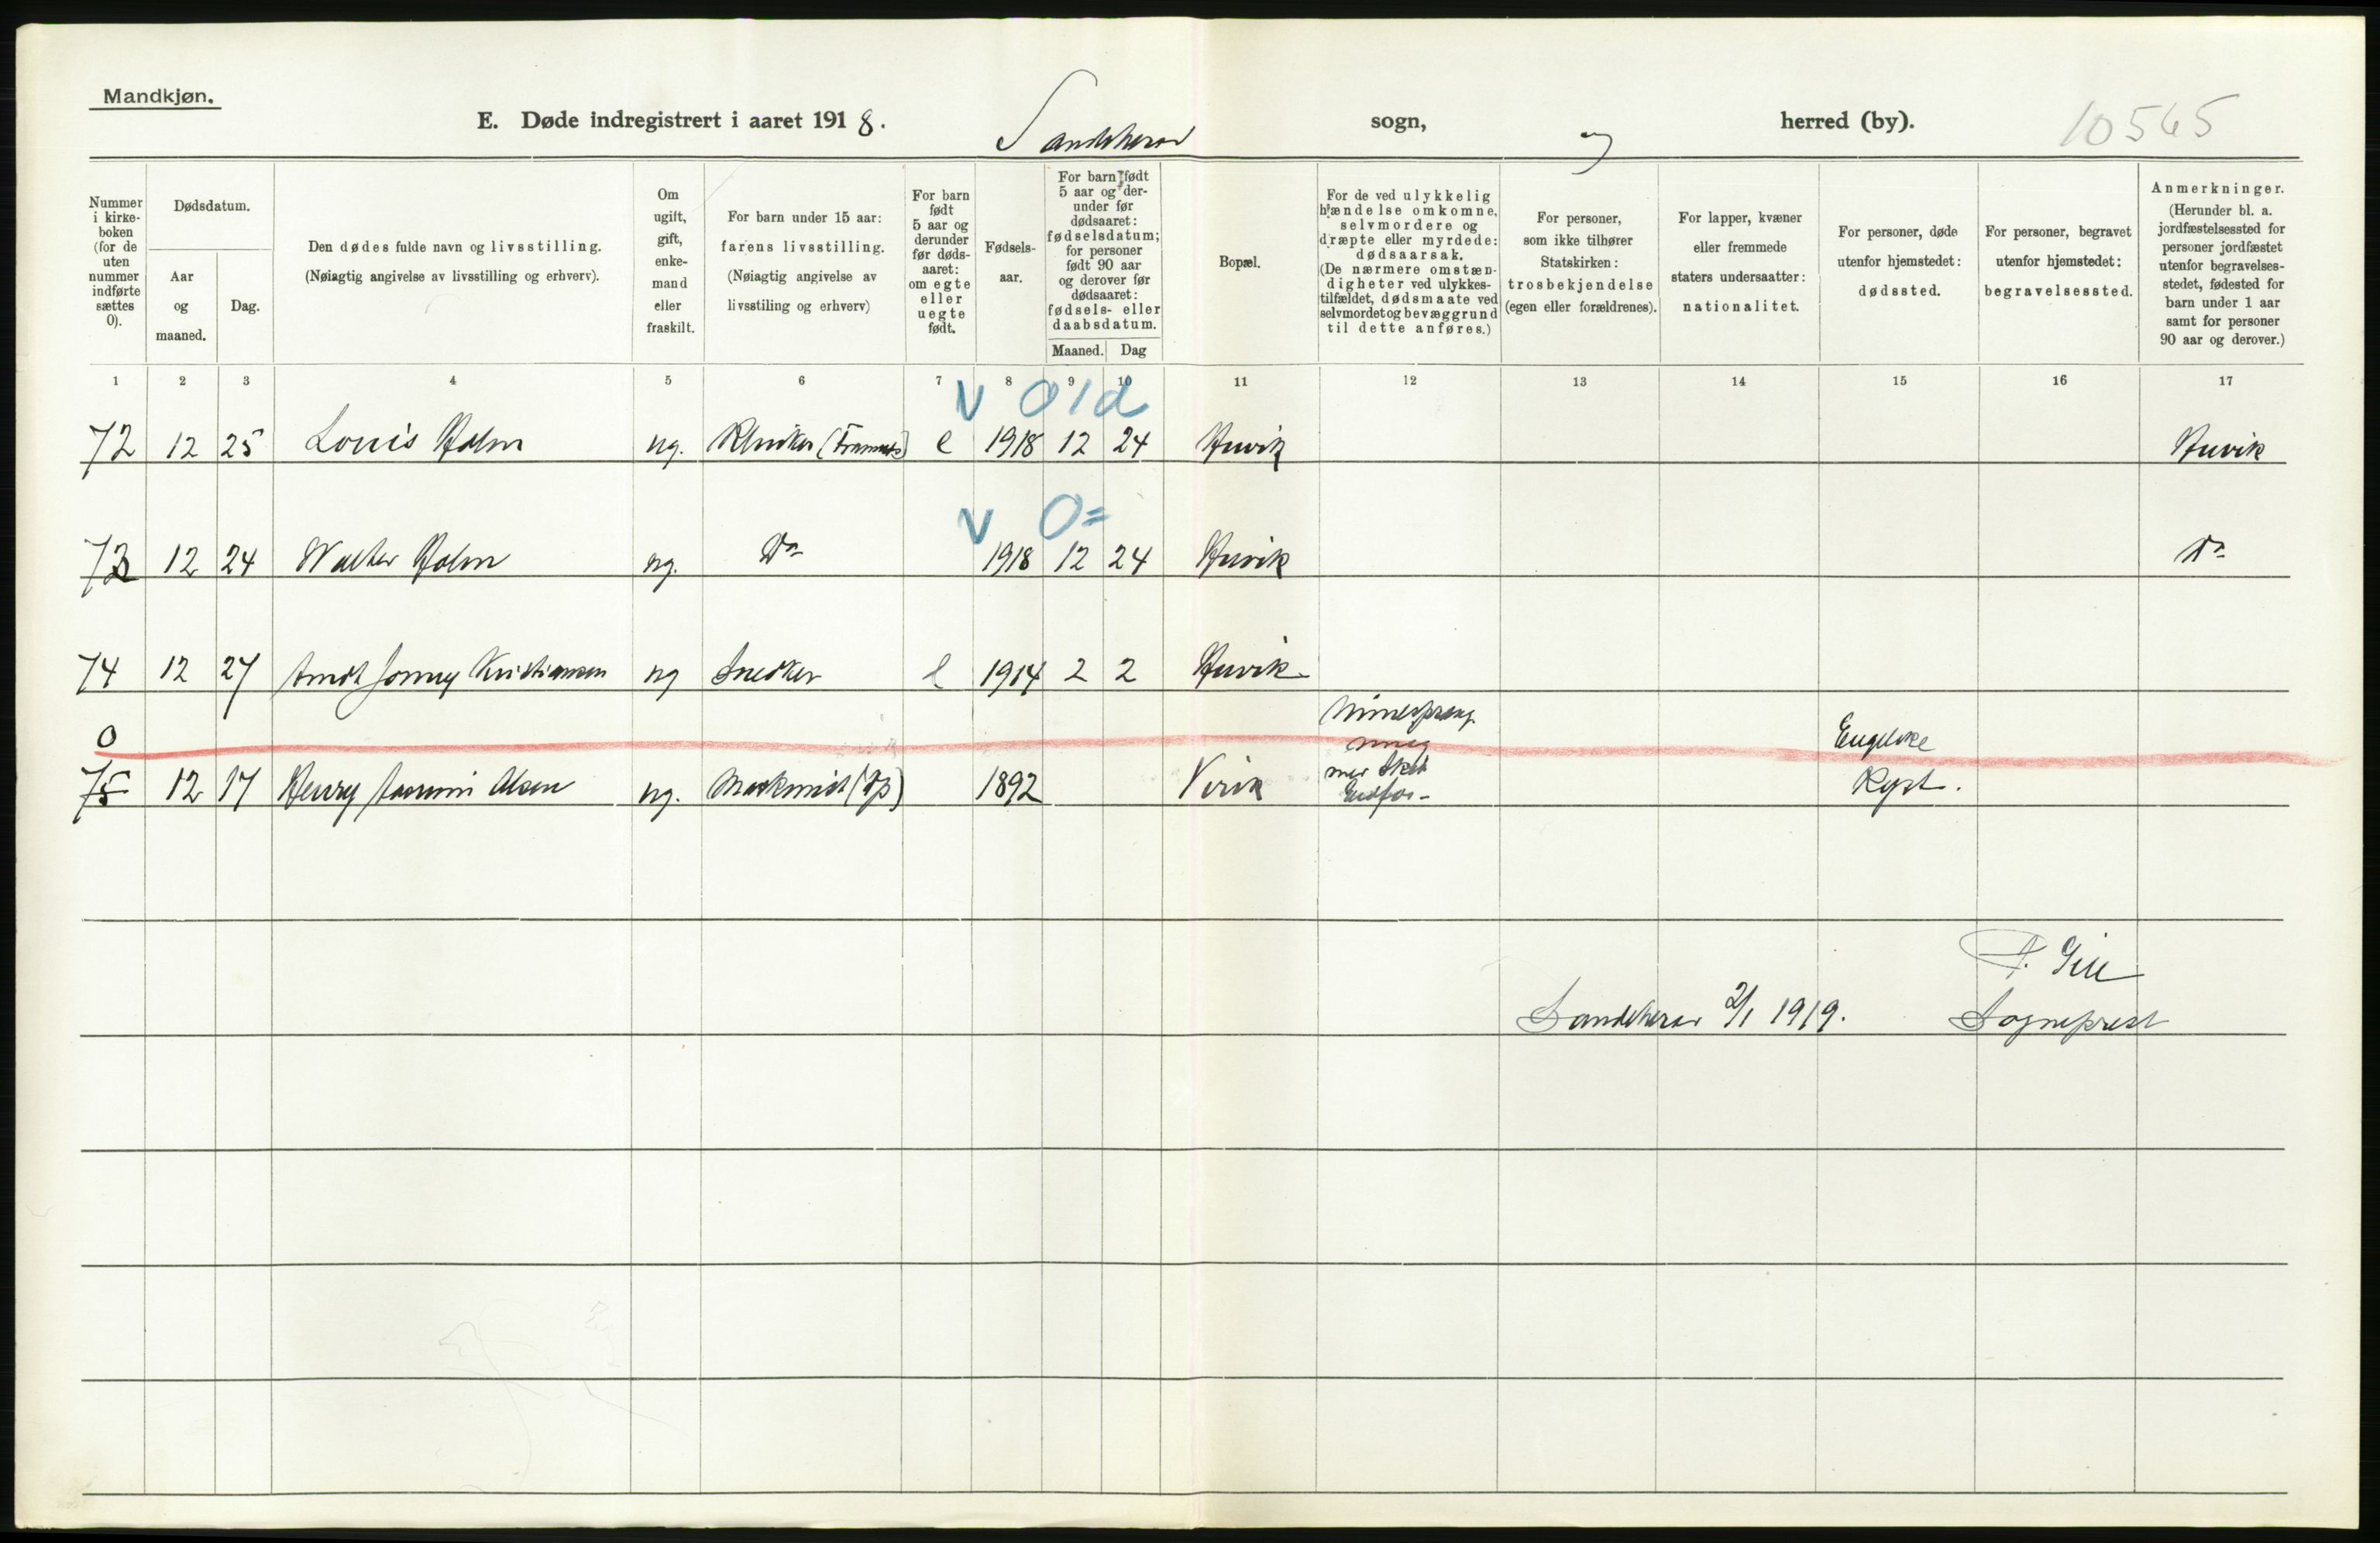 Mandkjøn.
E. Døde indregistrert i aaret 1918. Sandeherad sogn, herred (by). 10565
Nummer i kirke- boken (for de uten nummer indførte sættes 0).
Dødsdatum.
Aar og maaned.
Dag.
Den dødes fulde navn og livsstilling.
(Nøiagtig angivelse av livsstilling og erhverv).
Om ugift, gift, enke- mand eller fraskilt.
For barn under 15 aar: farens livsstilling.
(Nøiagtig angivelse av livsstiling og erhverv)
For barn født 5 aar og derunder før døds- aaret: om egte eller uegte født.
Fødsels- aar.
For barn født 5 aar og der- under før dødsaaret: fødselsdatum; for personer født 90 aar og derover før dødsaaret: fødsels- eller daabsdatum.
Maaned. Dag
Bopæl.
For de ved ulykkelig hændelse omkomne, selvmordere og dræpte eller myrdede: dødsaarsak.
(De nærmere omstæn- digheter ved ulykkes- tilfældet, dødsmaate ved selvmordet og bevæggrund til dette anføres.)
For personer, som ikke tilhører Statskirken: trosbekjendelse (egen eller forældrenes).
For lapper, kvæner eller fremmede staters undersaatter: nationalitet.
For personer, døde utenfor hjemstedet: dødssted.
For personer, begravet utenfor hjemstedet: begravelsessted.
Anmerkninger.
(Herunder bl. a. jordfæstelsessted for personer jordfæstet utenfor begravelses- stedet, fødested for barn under 1 aar samt for personer 90 aar og derover.)
1 2 3 4 5 6 7 8 9 10 11 12 13 14 15 16 17
V 0 1 d
72 12 25 Louis Holm ug. e 1918 12 24 Huvik Huvik
V 0 =
73 12 24 Walther Holm ug. Do 1918 12 24 Huvik Do
74 12 27 Arndt Jonny Kristiansen ug Snedker e 1914 2 2 Huvik
0 Minesprang- Engelske
75 12 17 Henry Olsen ug. 1892 Virik Kyst.
F. Gill
Sandeherad 2/1 1919. Sogneprest